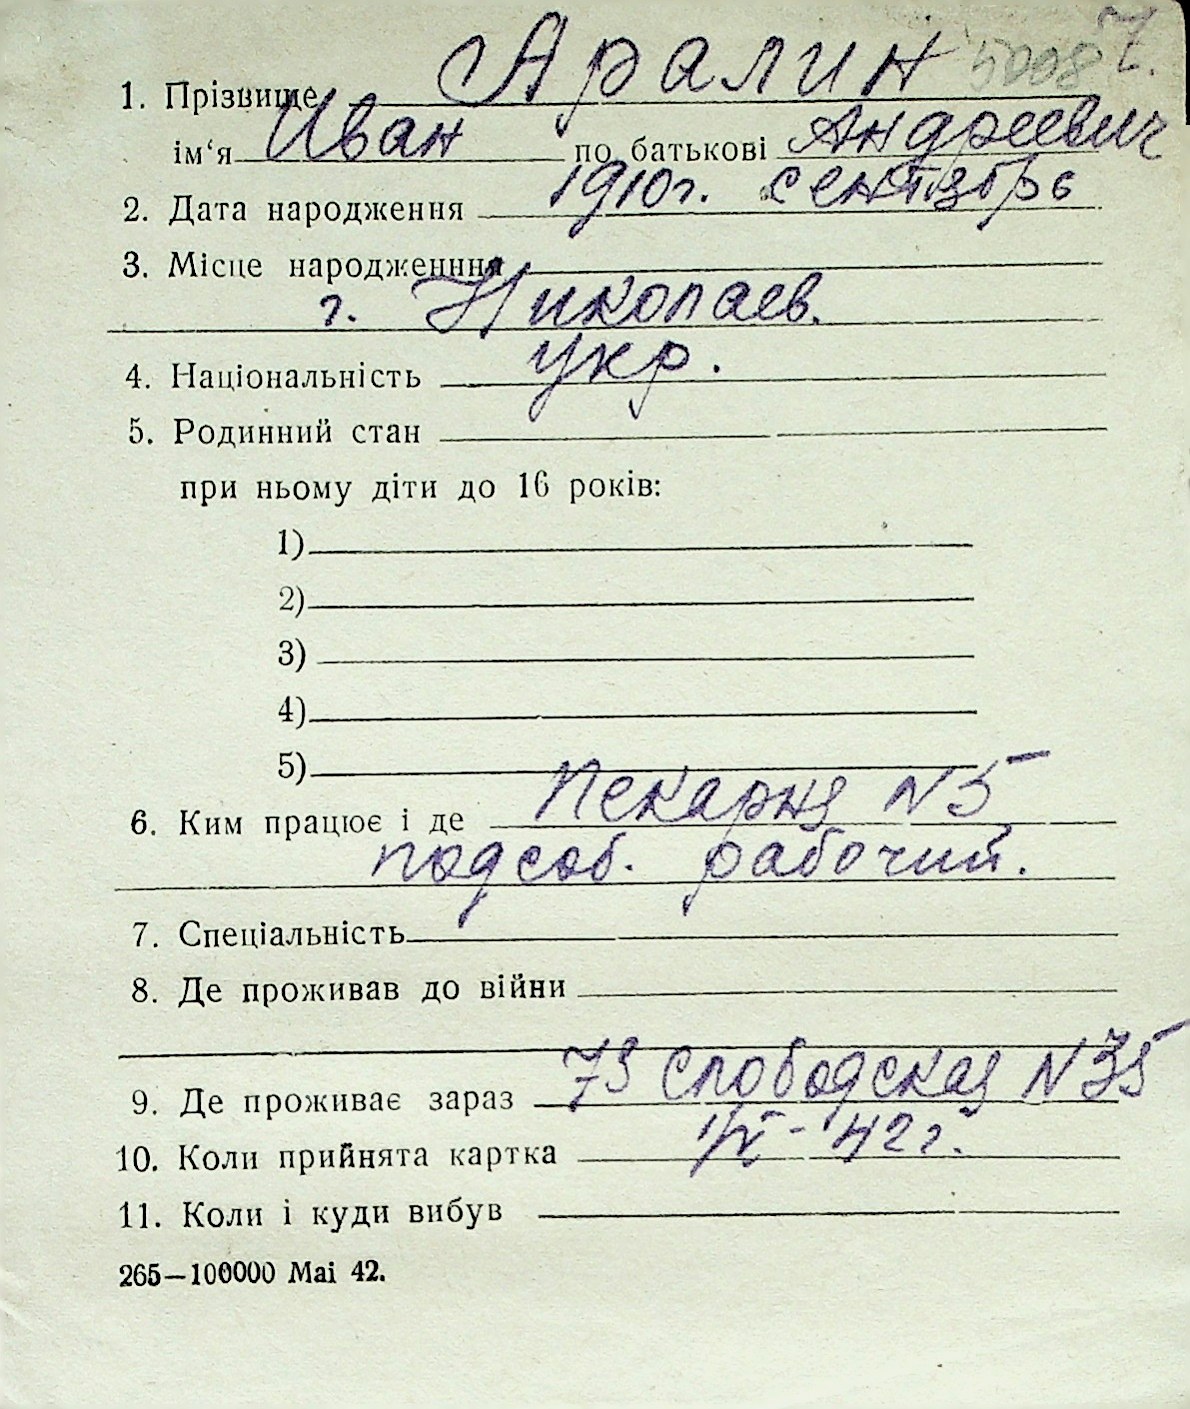 50087.
1. Прізвище Аралин
ім‘я Иван по батькові Андреевич
2. Дата народження 1910г. сентябрь
3. Місце народженння
г. Николаев.
4. Національність укр.
5. Родинний стан
при ньому діти до 16 років:
1)
2)
3)
4)
5)
6. Ким працює і де Пекарня N5
подсоб. рабочий.
7. Спеціальність
8. Де проживав до війни
9. Де проживає зараз 7 Слободская N 35
10. Коли прийнята картка 42г.
11. Коли і куди вибув
265—100000 Mai 42.